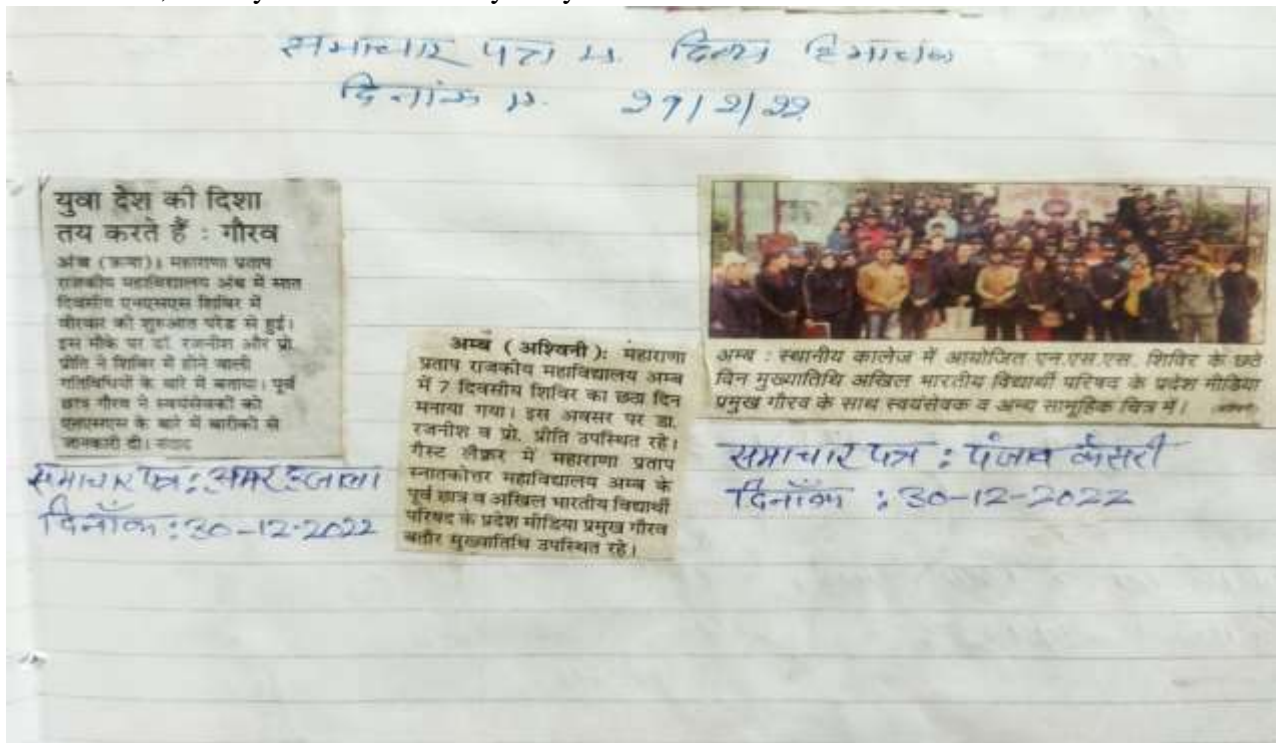 समाचार पत्र न. दिव्य हिमाचल
दिनांक न. 27/2/22
युवा देश की दिशा
तय करते हैं : गौरव
अंब (ऊना)। महाराणा प्रताप
राजकीय महाविद्यालय अंब में सात
दिवसीय एनएसएस शिविर में
वीरवार की शुरुआत परेड से हुई।
इस मौके पर डॉ. रजनीश और प्रो.
प्रीति ने शिविर में होने वाली
गतिविधियों के बारे में बताया। पूर्व
छात्र गौरव ने स्वयंसेवकों को
एनएसएस के बारे में बारीकी से
जानकारी दी। संवाद
समाचार पत्र : अमर उजाला
दिनाँक : 30-12-2022
अम्ब (अश्विनी): महाराणा
प्रताप राजकीय महाविद्यालय अम्ब
में 7 दिवसीय शिविर का छठा दिन
मनाया गया। इस अवसर पर डा.
रजनीश व प्रो. प्रीति उपस्थित रहे।
गैस्ट लैक्चर में महाराणा प्रताप
स्नातकोत्तर महाविद्यालय अम्ब के
पूर्व छात्र व अखिल भारतीय विद्यार्थी
परिषद के प्रदेश मीडिया प्रमुख गौरव
बतौर मुख्यातिथि उपस्थित रहे।
अम्ब : स्थानीय कालेज में आयोजित एन.एस.एस. शिविर के छठे
दिन मुख्यातिथि अखिल भारतीय विद्यार्थी परिषद के प्रदेश मीडिया
प्रमुख गौरव के साथ स्वयंसेवक व अन्य सामूहिक चित्र में।
समाचार पत्र : पंजाब केसरी
दिनाँक : 30-12-2022